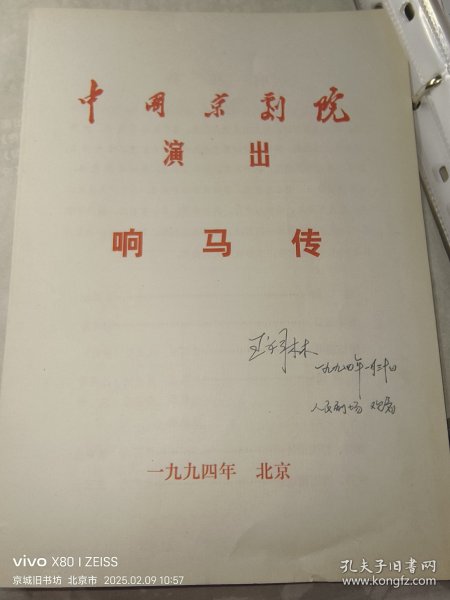 中国京剧院
演出
响马传
一九九四年一月三十日
人民剧场 观看
一九九四年 北京
vivo X80 | ZEISS
京城旧书坊 北京市 2025.02.09 10:57
孔夫子旧书网
www.kongfz.com